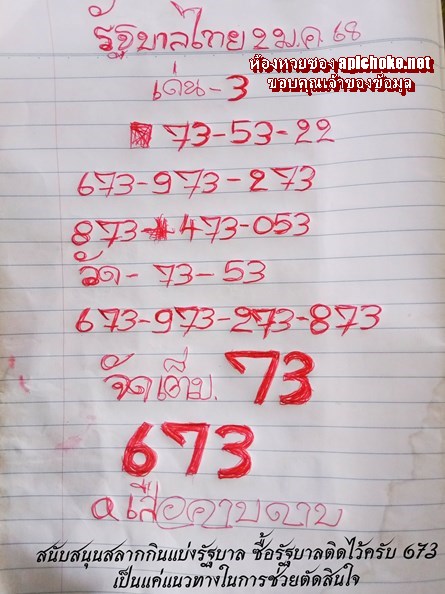 รัฐบาลไทย 2 ม.ค 68
ห้องหวยซอง apichoke.net
ขอบคุณเจ้าของข้อมูล
เด่น - 3
73-53-22
673-973-273
873-473-053
วัด - 73-53
673-973-273-873
จัดเต็ม. 73
673
อ.เสือคาบดาบ
สนับสนุนสลากกินแบ่งรัฐบาล ซื้อรัฐบาลติดไว้ครับ 673
เป็นแค่แนวทางในการช่วยตัดสินใจ